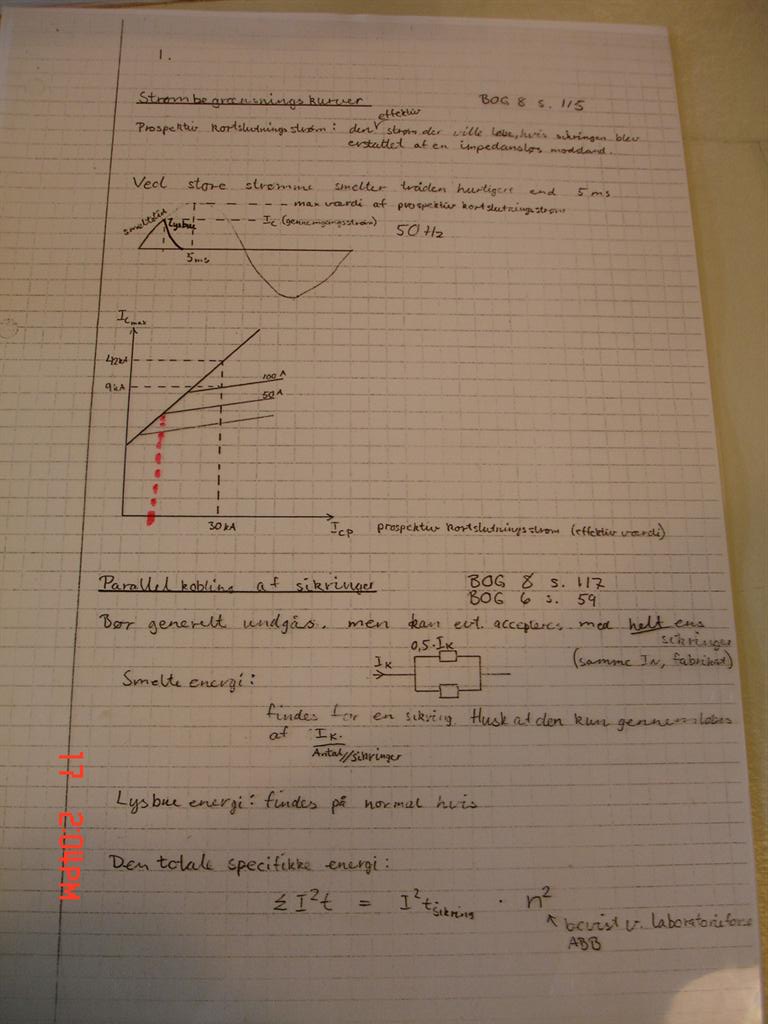 1.
Strømbegrænsningskurver BOG 8 s. 115
effektiv
Prospektiv kortslutningsstrøm: den strøm der ville løbe, hvis sikringen blev
erstattet af en impedansløs modstand.
Ved store strømme smelter tråden hurtigere end 5 ms
max værdi af prospektiv kortslutningsstrøm
smeltetid Lysbue Ic (gennemgangsstrøm) 50 Hz
5ms
Ic max
42kA
9kA
100A
50A
30kA Icp prospektiv kortslutningsstrøm (effektiv værdi)
Parallelkobling af sikringer BOG 8 s. 117
BOG 6 s. 59
Bør generelt undgås, men kan evt. accepteres med helt ens
sikringer
(samme IN, fabrikat)
0,5·IK
IK
Smelte energi:
findes for en sikring. Husk at den kun gennemløbes
af IK
Antal//sikringer
Lysbue energi: findes på normal hvis
Den totale specifikke energi:
Σ I²t = I²t sikring · n²
bevist v. laboratorie
ABB
17 2:04PM